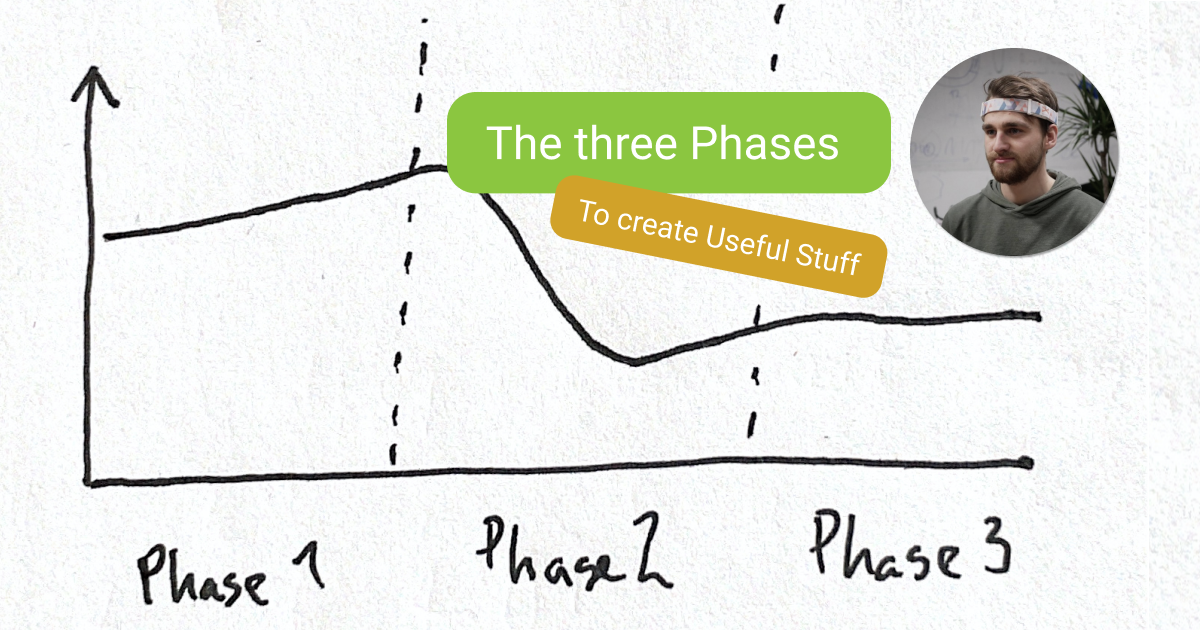 The three Phases
To create Useful Stuff
Phase 1
Phase 2
Phase 3